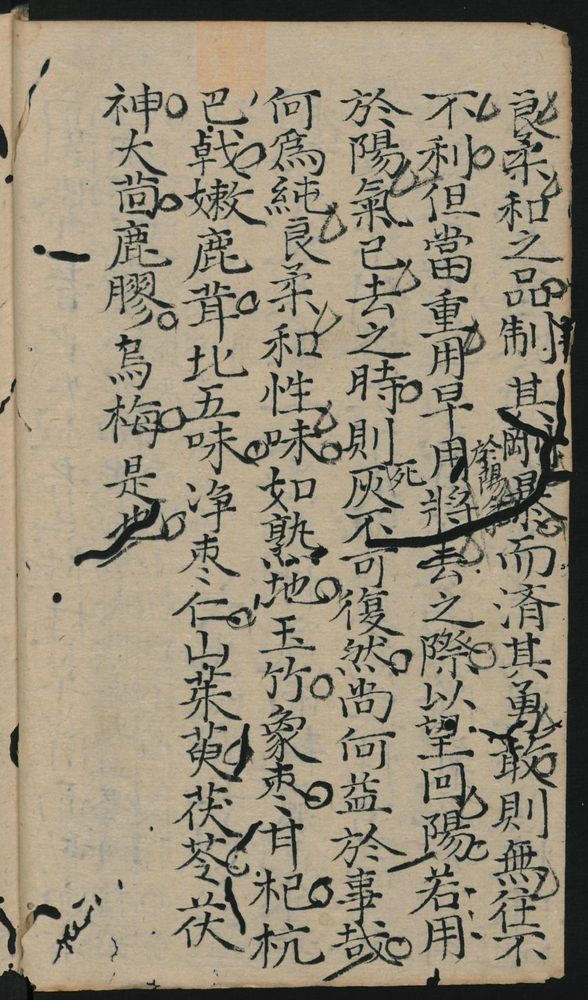 良柔和之品制其剛暴而濟其勇敢則無往不
不利但當重用早用於陽氣將去之際以望回陽若用
於陽氣已去之時則死灰不可復然尚何益於事哉
何爲純良柔和性味如熟地玉竹象枣甘杞杭
巴戟嫩鹿茸北五味净枣仁山茱萸茯苓茯
神大茴鹿膠烏梅是也